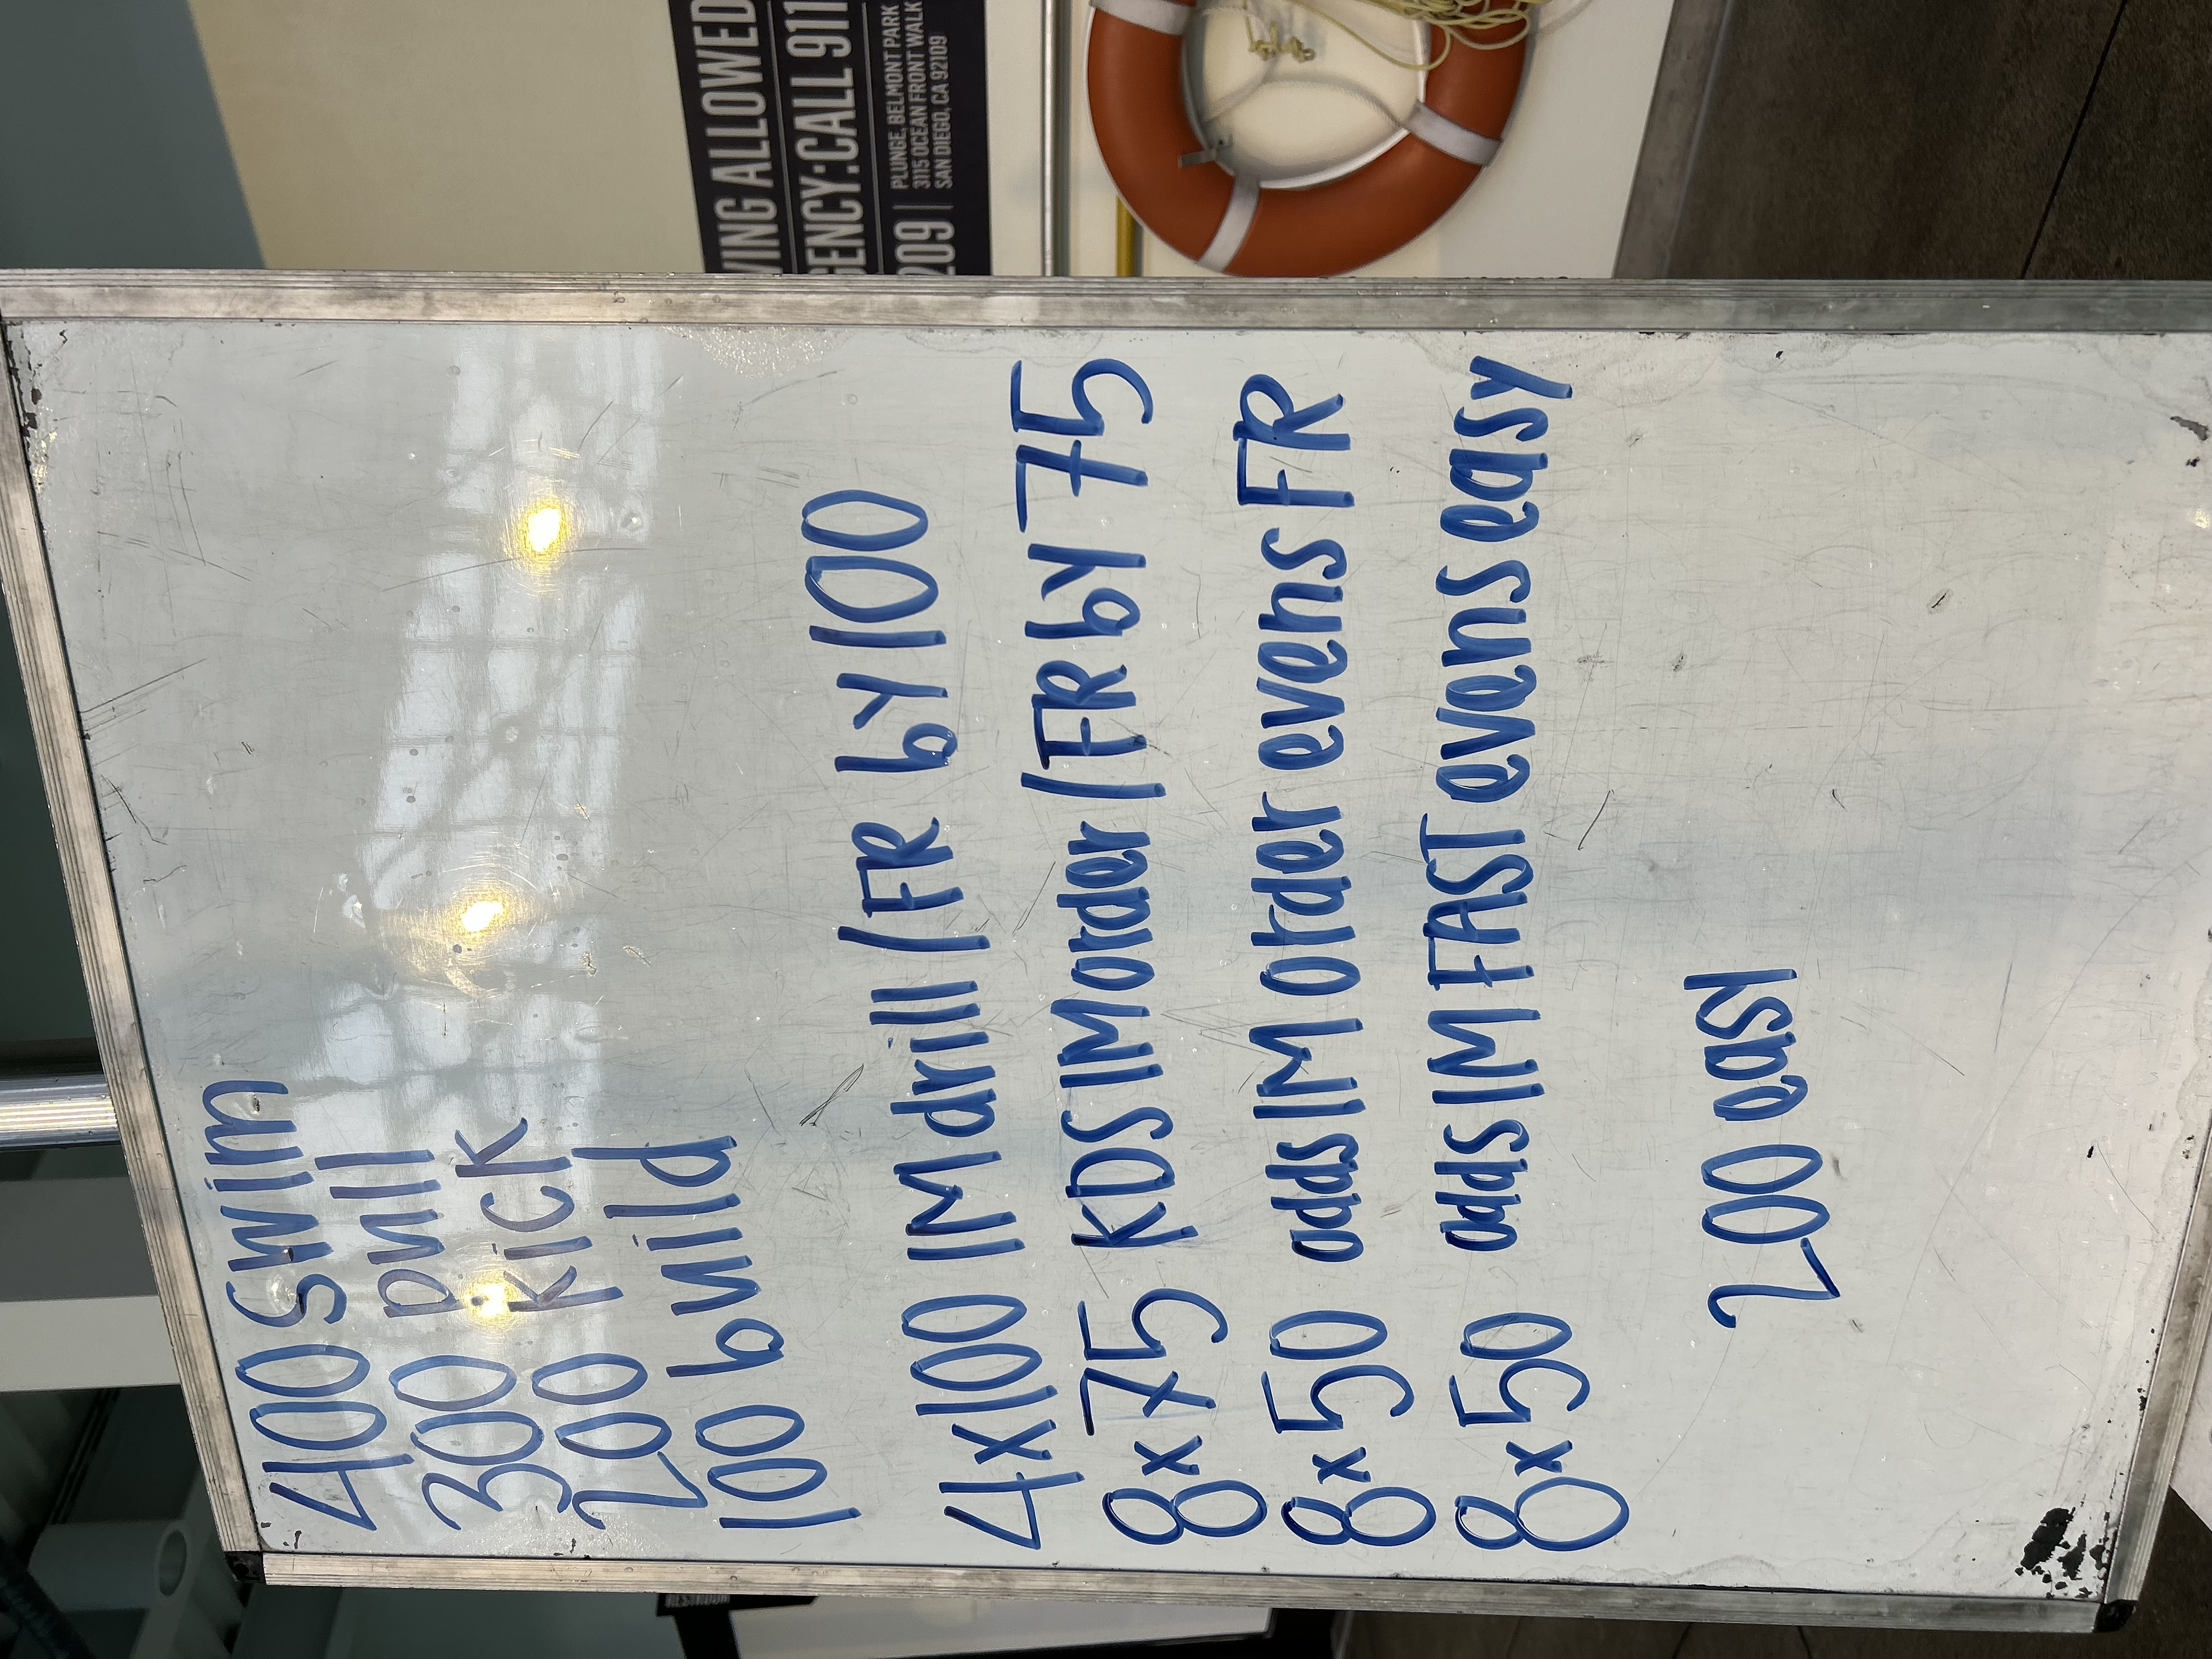 VING ALLOWED
GENCY: CALL 911
209 | PLUNGE, BELMONT PARK
3115 OCEAN FRONT WALK
| SAN DIEGO, CA 92109
400 swim
300 pull
200 kick
100 build
4x100 IM drill / FR by 100
8x75 KDS IM order / FR by 75
8x50 odds IM order evens FR
8x50 odds IM FAST evens easy
200 easy